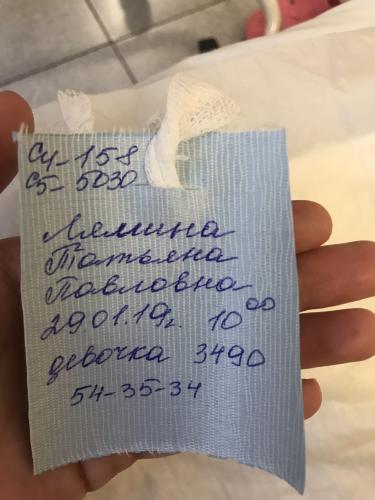 СЧ-158
С5-5030
Лямина
Татьяна
Павловна
29.01.19г. 10⁰⁰
девочка 3490
54-35-34